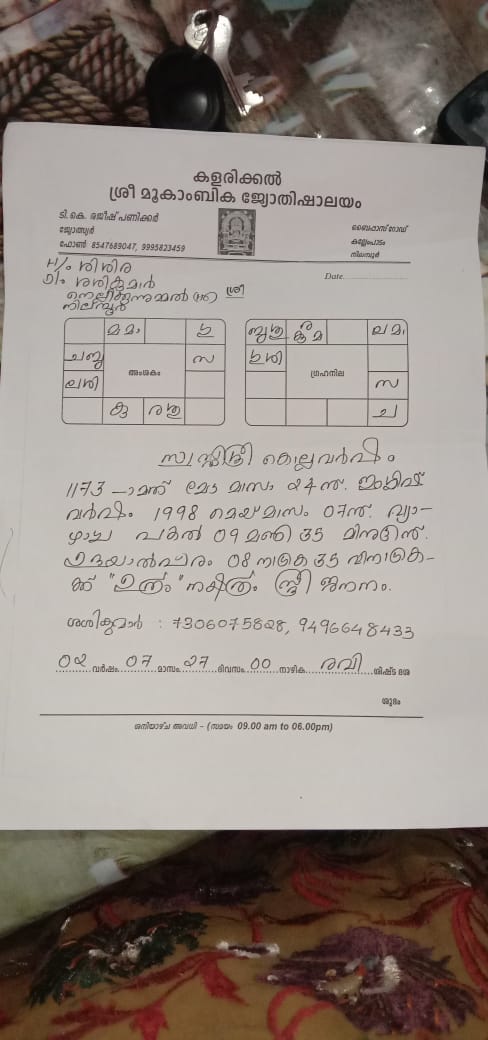 കളരിക്കൽ
ശ്രീ മൂകാംബിക ജ്യോതിഷാലയം
ടി. കെ. രജീഷ് പണിക്കർ
ജ്യോത്സ്യർ
ഫോൺ: 8547689047, 9995823459
ബൈപ്പാസ് റോഡ്
കല്ലേംപാടം
നിലമ്പൂർ
Date
H/o ശിശിര
D/o ശശികുമാർ
നിലമ്പൂർ
ശ്രീ
മ മാ
ചബു
സ
അംശകം
ലശി
കു
ര ശു
ബുശു
കു ര മ
ല മാ
ഗ്രഹനില
സ
ച
സ്വസ്തിശ്രീ കൊല്ലവർഷം
1173 -ാമത് മേട മാസം 24ന്. ഇംഗ്ലീഷ്
വർഷം 1998 മെയ് മാസം 07ന്. വ്യാ-
ഴാഴ്ച പകൽ 09 മണി 35 മിനുട്ടിന്.
ഉദയാൽപരം 08 നാഴിക 35 വിനാഴിക-
ക്ക് "ഉത്രം" നക്ഷത്രം സ്ത്രീ ജനനം.
ശശികുമാർ : 7306075828, 9496648433
02 വർഷം 07 മാസം 27 ദിവസം 00 നാഴിക രവി ശിഷ്ട ദശ
ശുഭം
ശനിയാഴ്ച അവധി - (സമയം 09.00 am to 06.00pm)